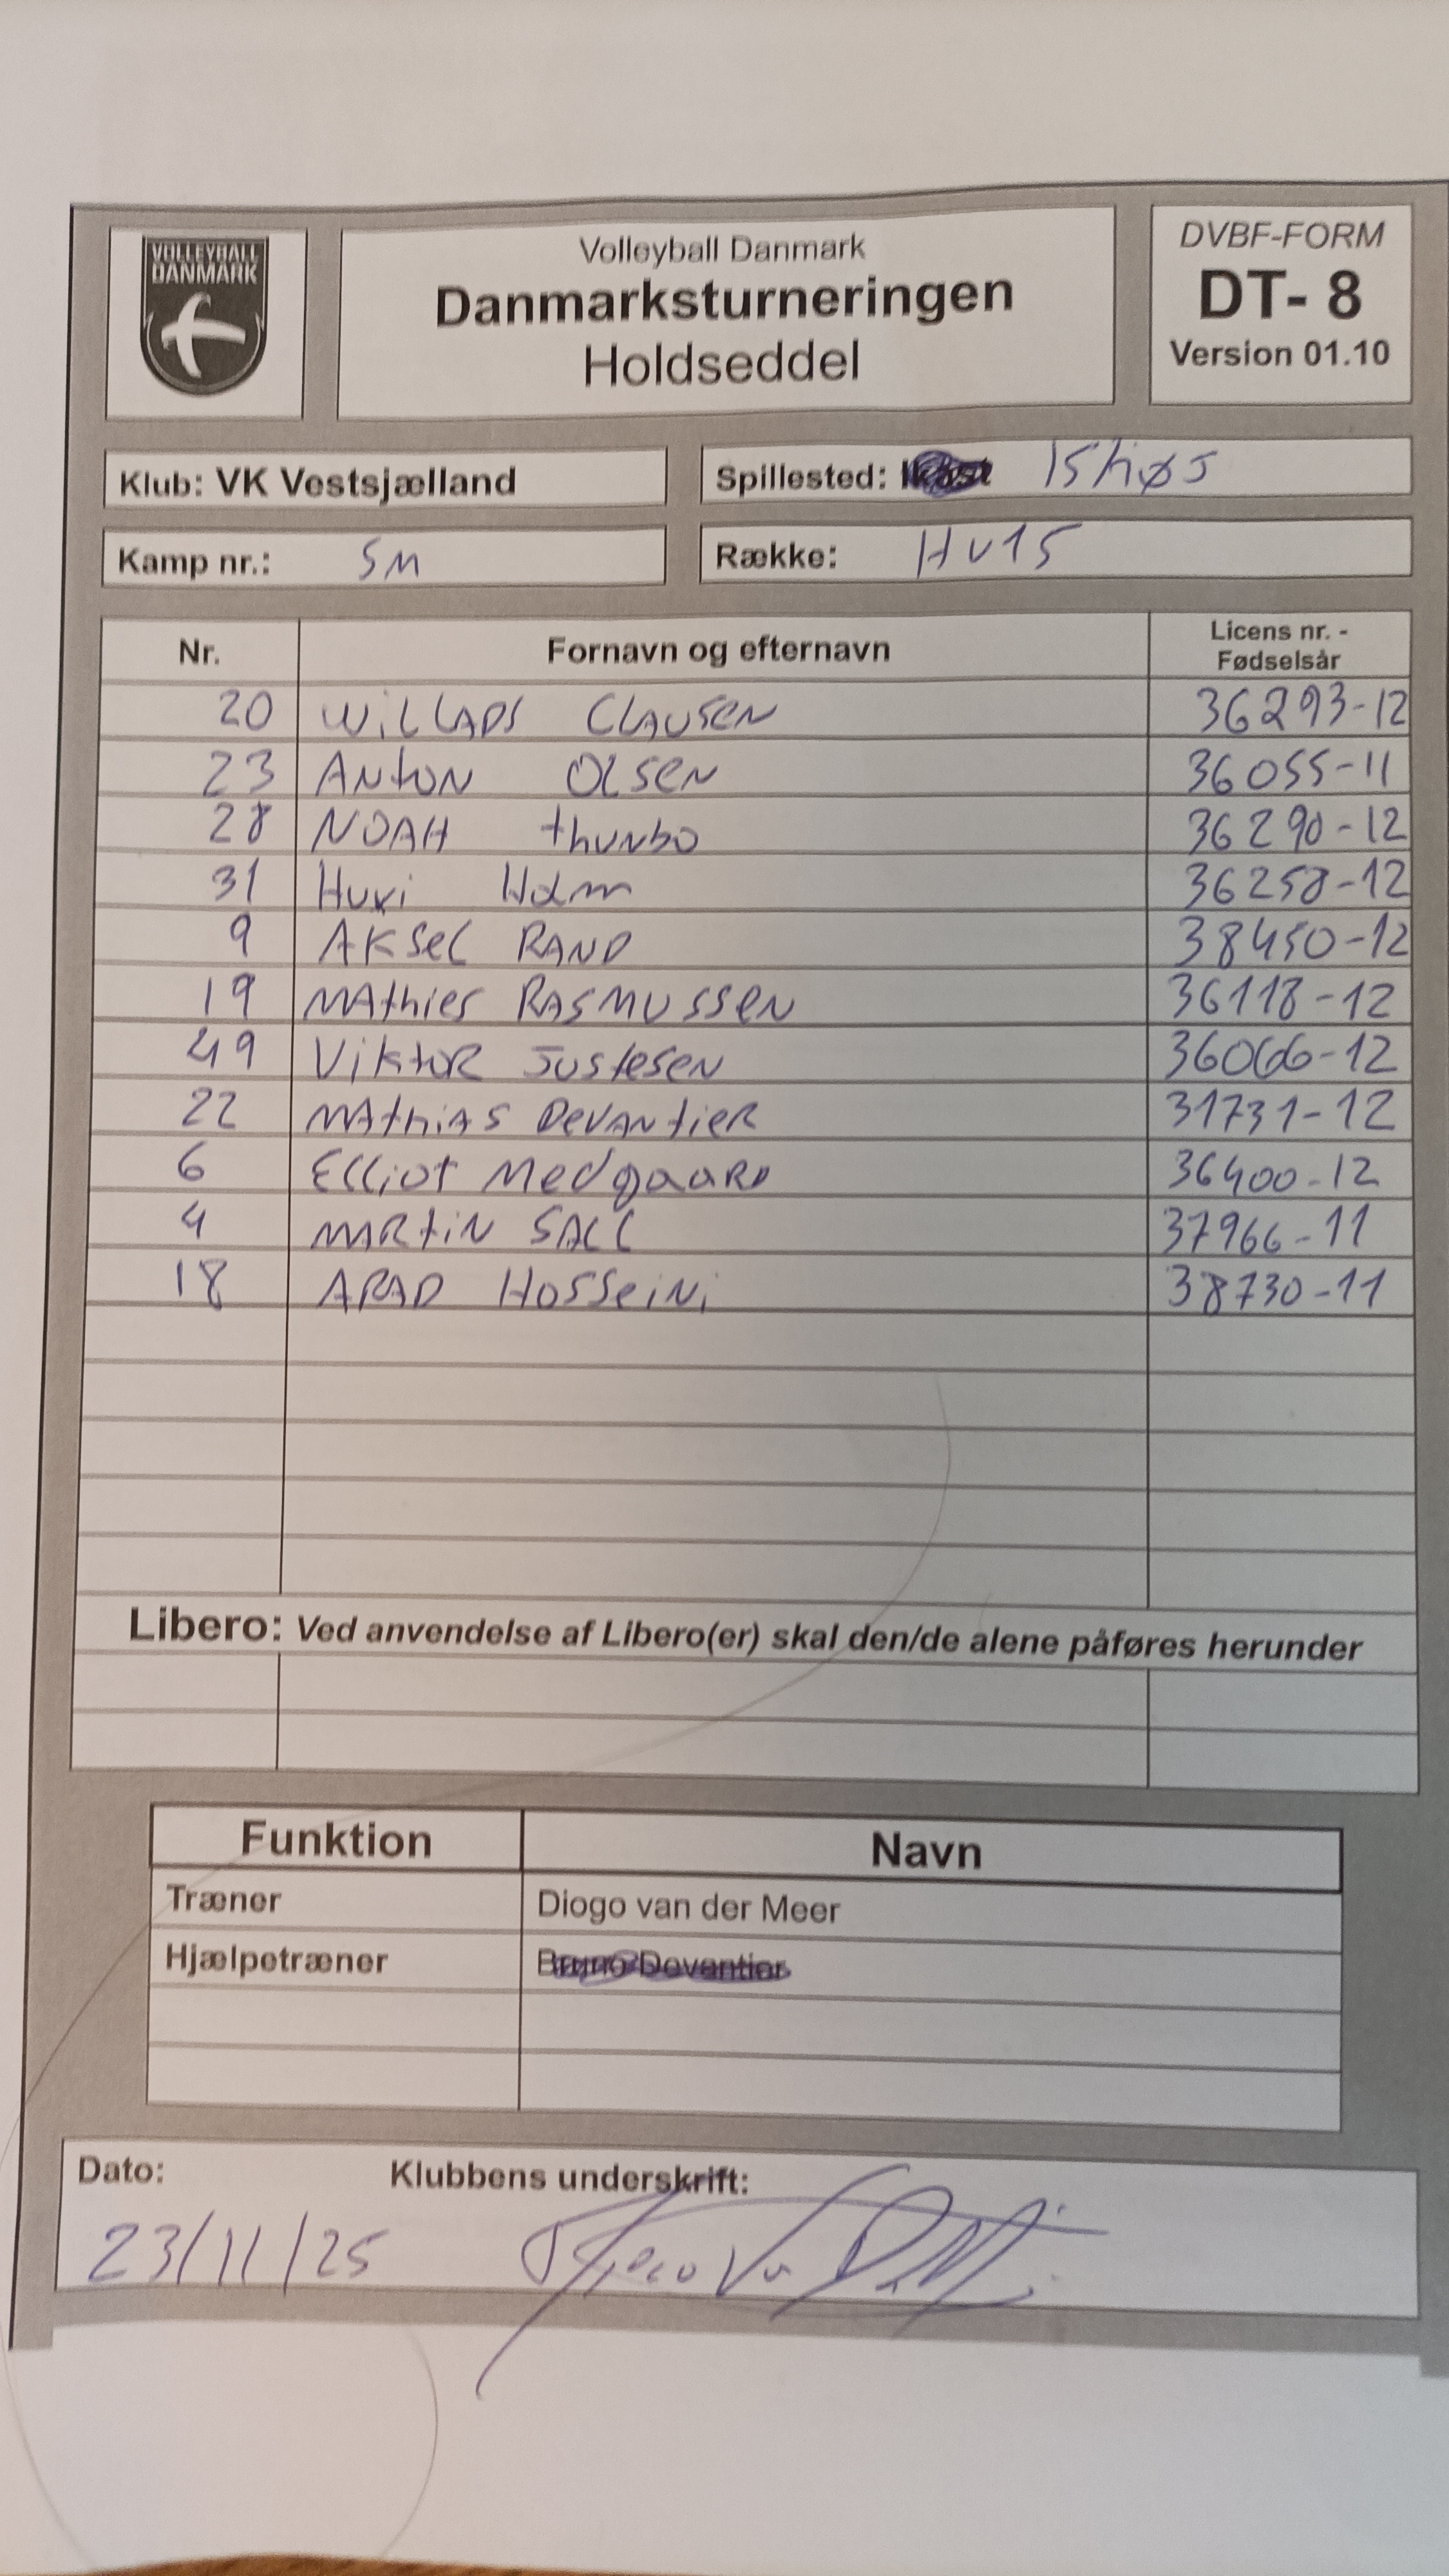 VOLLEYBALL
DANMARK
Volleyball Danmark
Danmarksturneringen
Holdseddel
DVBF-FORM
DT- 8
Version 01.10
Klub: VK Vestsjælland
Spillested: Ishøj
Kamp nr.: SM
Række: HU15
Nr. Fornavn og efternavn Licens nr. - Fødselsår
20 WILLADS CLAUSEN 36293-12
23 ANTON OLSEN 36055-11
28 NOAH thunbo 36290-12
31 Holm 36258-12
9 AKSEL RAND 38450-12
19 MAthies RASMUSSEN 36118-12
49 ViktoR Justesen 36066-12
22 MAthiAS DevANtieR 31731-12
6 Elliot Medgaard 36400-12
4 MARtiN SALL 37966-11
18 ARAD Hosseini 38730-11
Libero: Ved anvendelse af Libero(er) skal den/de alene påføres herunder
Funktion Navn
Træner Diogo van der Meer
Hjælpetræner Bruno Devantier
Dato: Klubbens underskrift:
23/11/25